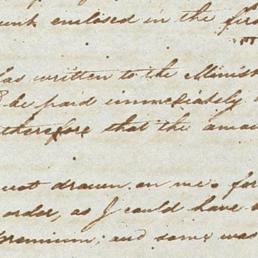 unk enclosed in the firs
has written to the Minist
be paid immediately
therefore that the amou
not drawn on me for
order, as I could have
premium; and some was